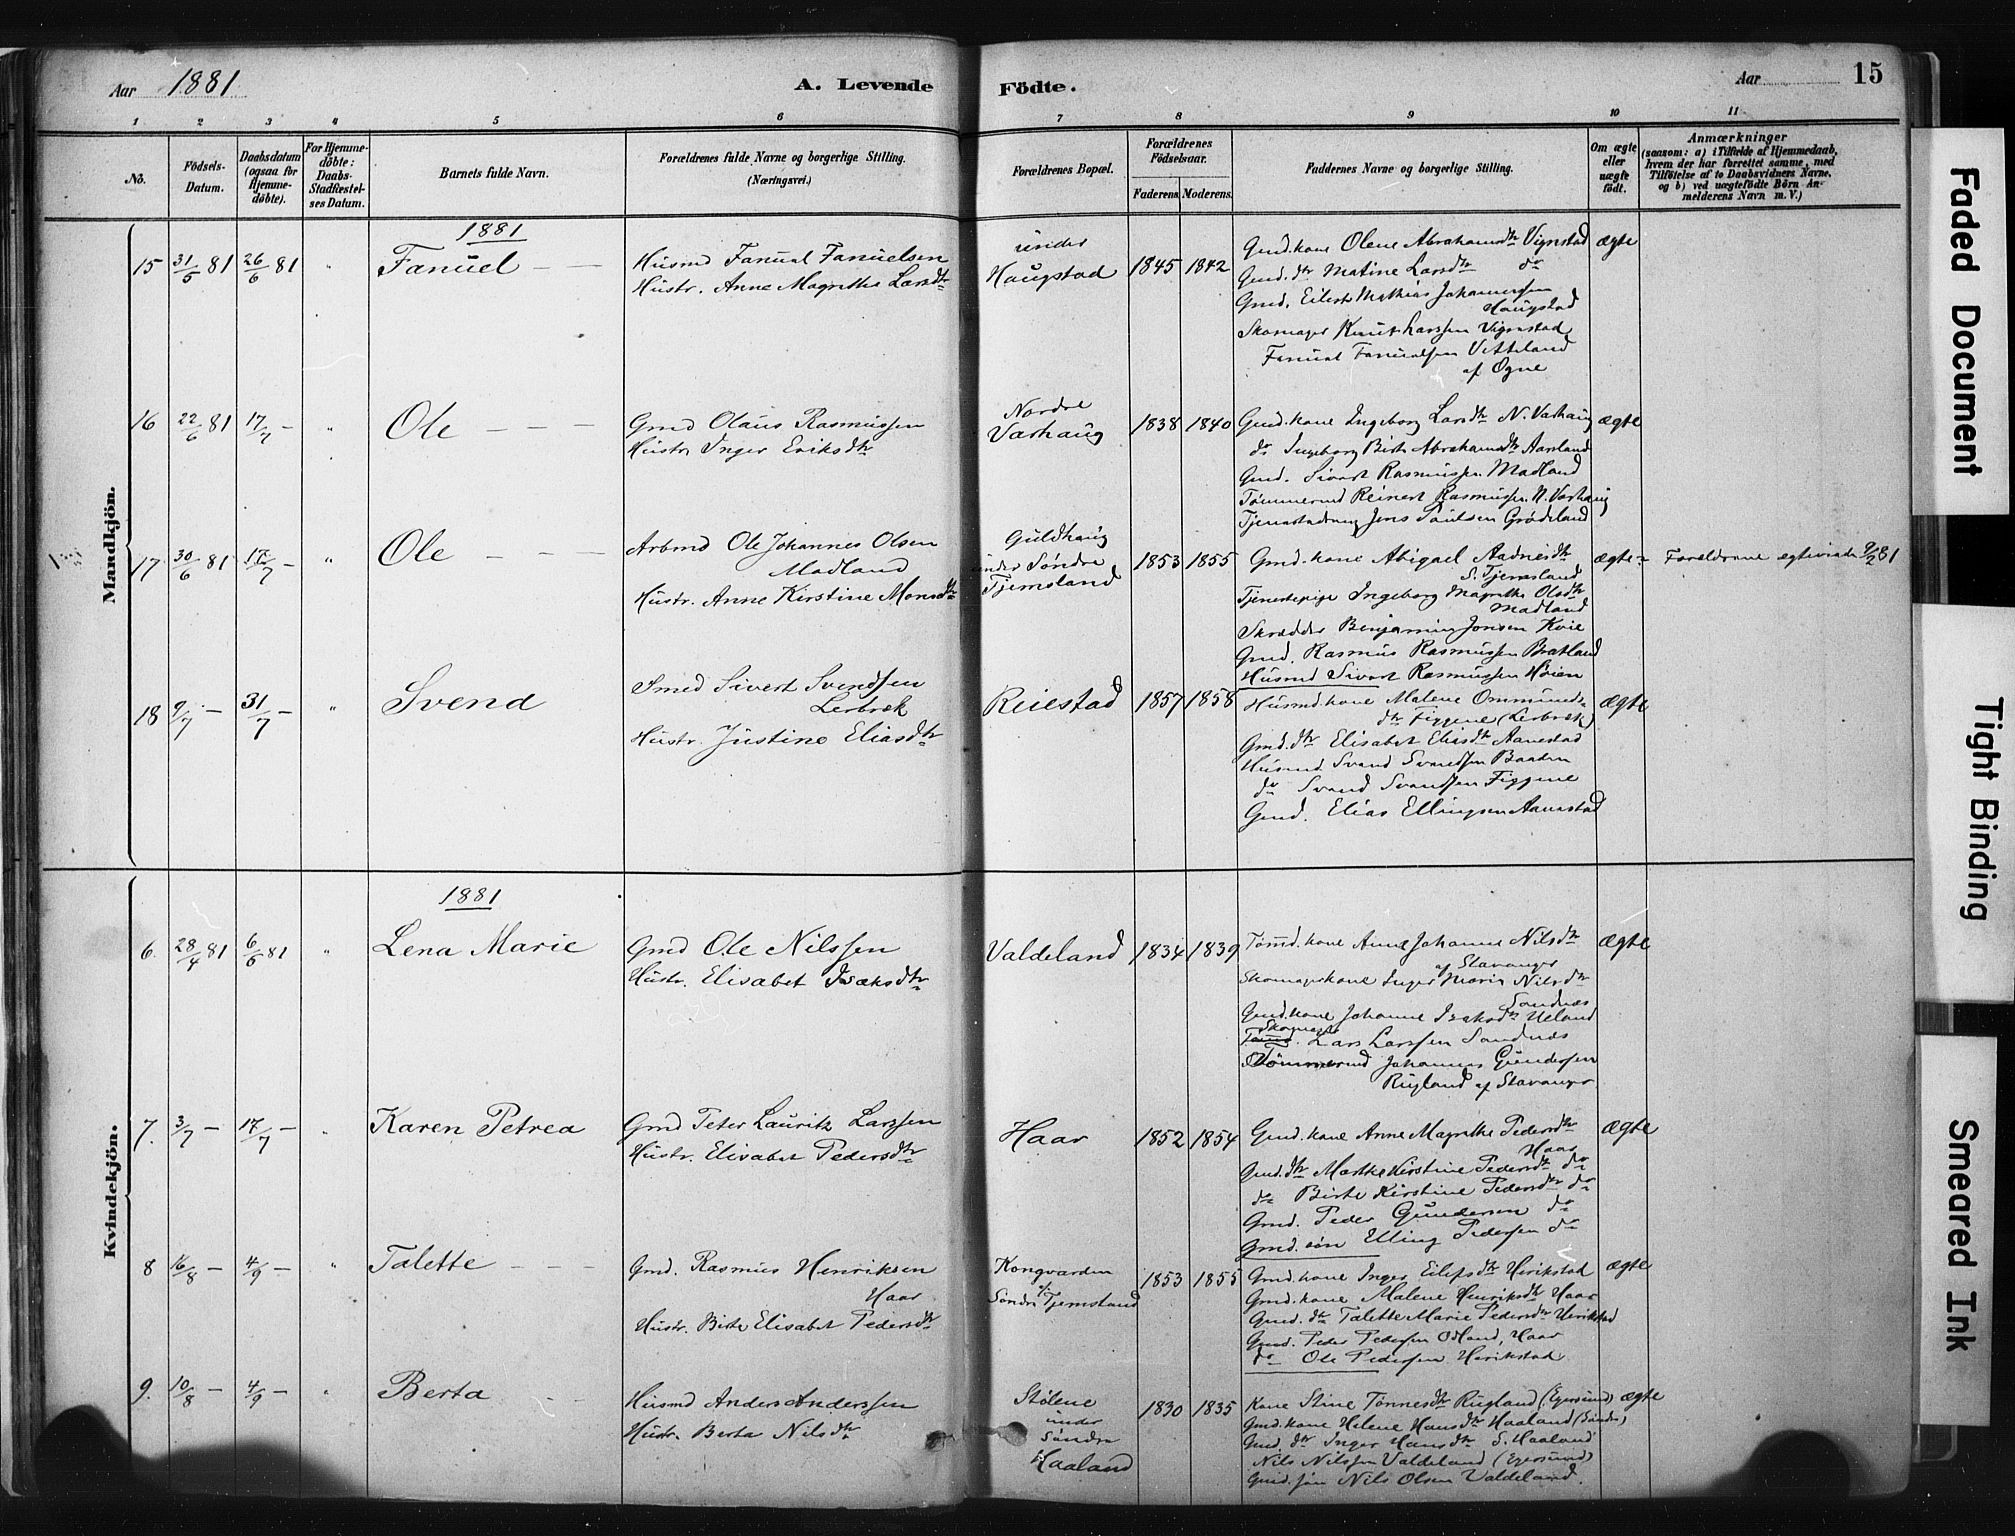 Aar 1881.
A. Levende Födte.
Aar 15
1 2 3 4 5 6 7 8 9 10 11
No.
Födsels-
Datum.
Daabsdatum
(ogsaa for
Hjemme-
døbte).
For Hjemme-
døbte:
Daabs-
Stadfæstel-
ses Datum.
Barnets fulde Navn.
Forældrenes fulde Navne og borgerlige Stilling.
(Næringsvei.)
Forældrenes Bopæl.
Forældrenes
Födselsaar.
Faderens. Moderens.
Faddernes Navne og borgerlige Stilling.
Om ægte
eller
uægte
født.
Anmærkninger
(saasom: a) i Tilfælde af Hjemmedaab,
hvem der har forrettet samme, med
Tilføtelse af to Daabsvidners Navne,
og b) ved uægtefödte Börn An-
melderens Navn m. V.)
Mandkjön.
1881
15 31/5 81 26/6 81 " Fanuel
Husmd Fanuel Fanuelsen
Hustr. Anne Magrethe Larsdtr
under
Haugstad
1845 1842
Gmd. kone Olene Abrahamsdtr Vignstad
Gmd. dtr Matine Larsdtr do
Gmd. Eilert Mathias Johannessen
Haugstad
Skomager Knut Larssen Vignstad
Fanuel Fanuelsen Vetteland
af Ogne
ægte
16 22/6 81 17/7 - " Ole
Gmd Olaus Rasmussen
Hustr Inger Eriksdtr
Nordre
Varhaug
1838 1840
Gmd. kone Ingeborg Larsdtr N. Varhaug
do Ingeborg Birte Abrahamsdtr Aarsland
Gmd. Sivert Rasmussen Madland
Tømmermd Reinert Rasmussen N. Varhaug
Jens Paulsen Grødeland
ægte
17 30/6 81 17/7 - " Ole
Arbmd Ole Johannes Olsen
Madland
Hustr. Anne Kirstine Monsdtr
Guldhaug
under Søndre
Tjemsland
1853 1855
Gmd. kone Abigael Aadnesdtr
S. Tjemsland
Tjenestepige Ingeborg Magrethe Olsdtr
Madland
Skrædder Benjamin Jonsen Kvie
Gmd. Rasmus Rasmussen Bratland
Husmd Sivert Rasmussen Høien
ægte
Forældrene egteviede 9/2 81
18 9/7 - 31/7 - " Svend
Smed Sivert Svendsen
Lerbræk
Hustr. Justine Eliasdtr
Reiestad
1857 1858
Husmd. kone Malene Ommunds-
dtr Figgene (Lerbræk)
Gmd. dtr Elisabet Eliasdtr Aanestad
Husmd Svend Svendsen
do Svend Svendsen Figgene
Gmd. Elias Ellingsen Aanestad
ægte
Kvindekjön.
1881
6. 28/4 81 6/6 81 " Lena Marie
Gmd Ole Nilssen
Hustr. Elisabet Isaksdtr
Valdeland
1834 1839
Tømd. kone Anne Johanne Nilsdtr
af Stavanger
Skomagerkone Inger Marie Nilsdtr
Sandnæs
Gmd. kone Johanne Isaksdtr Ueland
Skomager
Lars Larssen Sandnæs
Tømmermd Johannes Gundersen
Rugland af Stavanger
ægte
7. 3/7 - 17/7 - " Karen Petrea
Gmd Peter Lauritz Larssen
Hustr. Elisabet Pedersdtr
Haar
1852 1854
Gmd. kone Anne Magrethe Pedersdtr
Haar
Gmd. dtr Marthe Kirstine Pedersdtr do
do Birte Kirstine Pedersdtr do
Gmd. Peder Gundersen do
Gmd. søn Elling Pedersen do
ægte
8 16/8 - 4/9 - " Talette
Gmd. Rasmus Henriksen
Haar
Hustr. Birte Elisabet Pedersdtr
Kongvarden
Søndre Tjemsland
1853 1855
Gmd. kone Inger Eilefsdtr Herikstad
Gmd. kone Malene Henriksdtr Haar
Gmd. dtr Talette Marie Pedersdtr Herikstad
Gmd. Peder Pedersen Odland, Haar
do Ole Pedersen Herikstad
ægte
9. 10/8 - 4/9 - " Berta
Husmd Anders Anderssen
Hustr. Berta Nilsdtr
Stølene
under
Søndre
Haaland
1830 1835
Kone Stine Tønnesdtr Rugland (Egersund)
Gmd. kone Helene Hansdtr Haaland (Søndre)
Gmd. dtr Inger Hansdtr S. Haaland
Nils Nilssen Valdeland (Egersund)
Gmd. søn Nils Olsen Valdeland.
ægte
Faded Document
Tight Binding
Smeared Ink